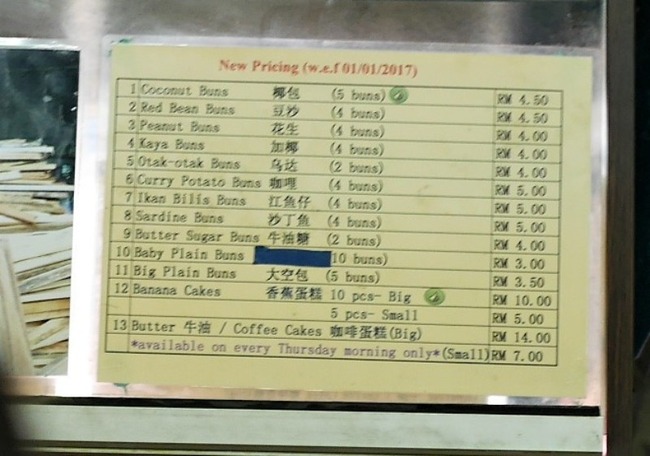 New Pricing (w.e.f 01/01/2017)
1 Coconut Buns 椰包 (5 buns) RM 4.50
2 Red Bean Buns 豆沙 (4 buns) RM 4.50
3 Peanut Buns 花生 (4 buns) RM 4.00
4 Kaya Buns 加椰 (4 buns) RM 4.00
5 Otak-otak Buns 乌达 (2 buns) RM 4.00
6 Curry Potato Buns 咖哩 (4 buns) RM 5.00
7 Ikan Bilis Buns 江鱼仔 (4 buns) RM 5.00
8 Sardine Buns 沙丁鱼 (4 buns) RM 5.00
9 Butter Sugar Buns 牛油糖 (2 buns) RM 4.00
10 Baby Plain Buns 10 buns) RM 3.00
11 Big Plain Buns 大空包 (5 buns) RM 3.50
12 Banana Cakes 香蕉蛋糕 10 pcs- Big RM 10.00
5 pcs- Small RM 5.00
13 Butter 牛油 / Coffee Cakes 咖啡蛋糕(Big) RM 14.00
*available on every Thursday morning only*(Small) RM 7.00